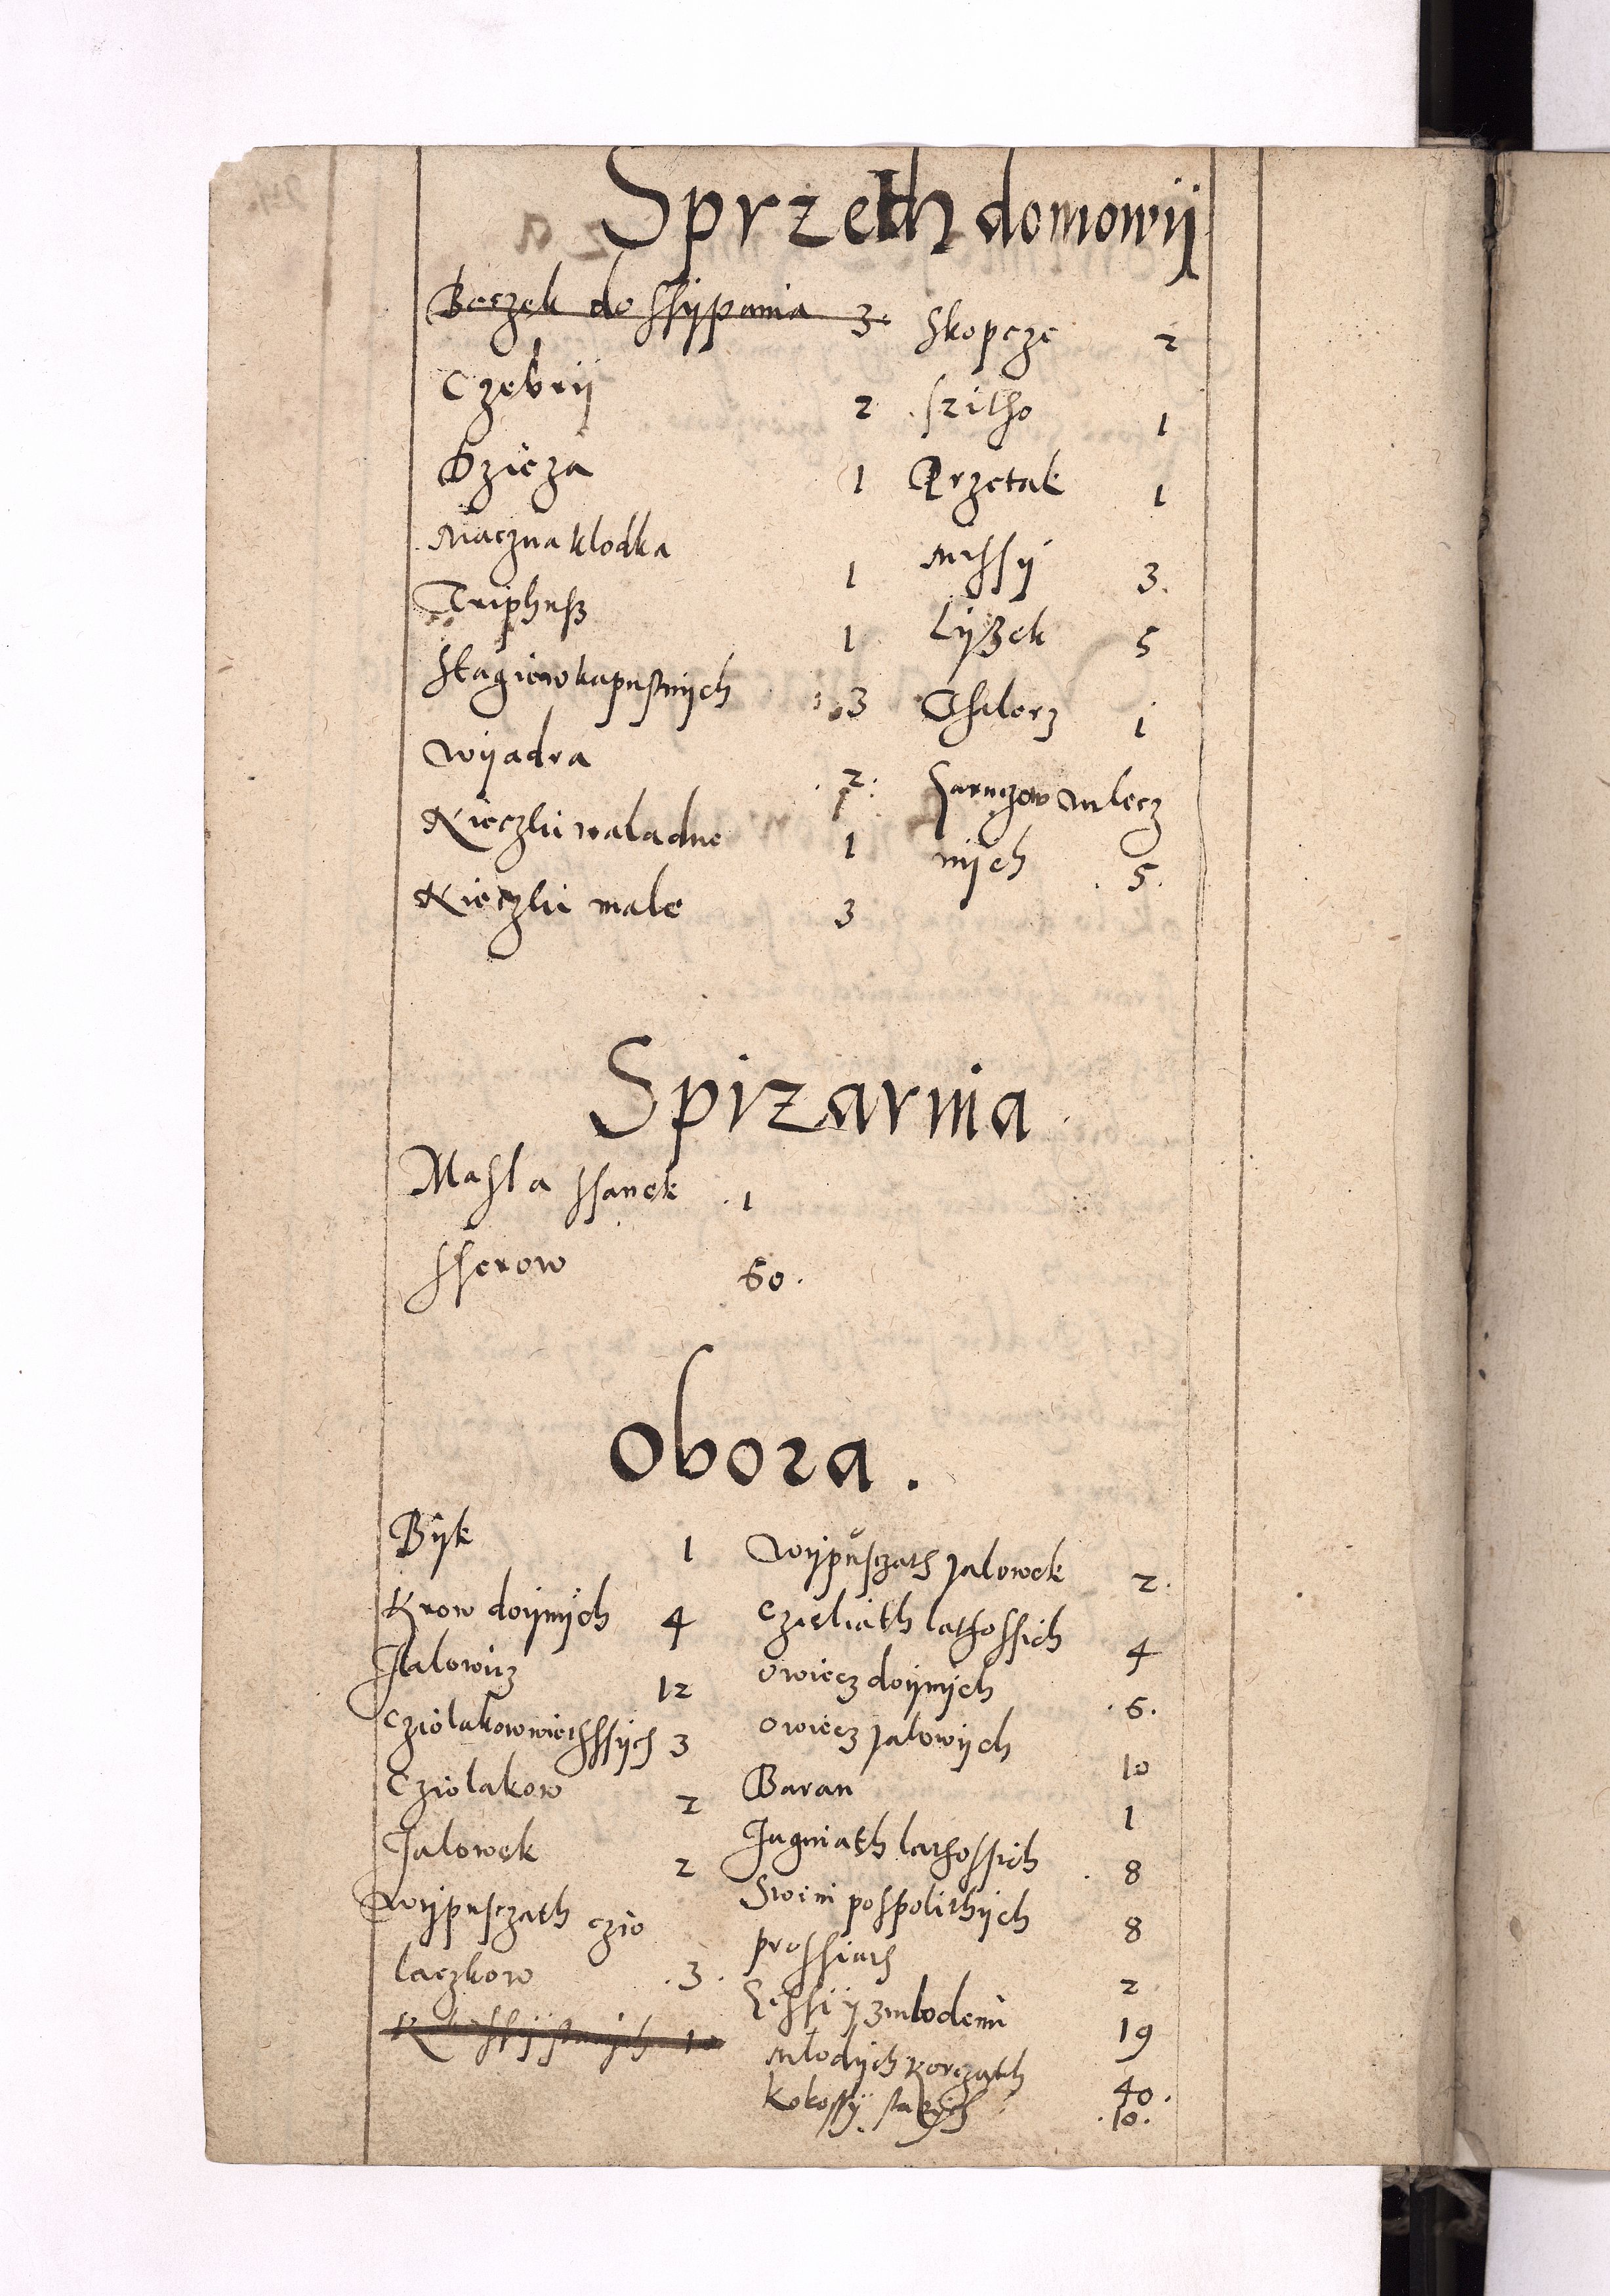 Sprzeth domowij
Beczek do ssijpania 3
Czebrij 2
Dzieza 1
Maczna klodka 1
Triphuß 1
Stagiew kapustnijch 3
Wijadra 2
Nieczki naladne 1
Nieczki male 3
Skopcze 2
Szitho 1
Przetak 1
Missij 3.
Lijßek 5
Thalerz 1
Garnczow mlecz
nijch 5.
Spizarnia
Masla ssanek 1
Sserow 60.
Obora.
Bijk 1
Krow doijnijch 4
Jalowicz 12
Cziolakow wiethssijch 3
Cziolakow 2
Jalowek 2
Wijpusczath czio
laczkow 3.
Kokossij starijch 10
Wijpusczath Jalowek 2.
Czieliath lathossich 4
Owiecz doijnijch 6.
Owiecz Jalowijch 10
Baran 1
Jagniath lathossich 8
Swini pospolithijch 8
prossiath 2
Gessi ij z mlodemi 19
Mlodijch kurczath 40.
Kokossij starijch 10.